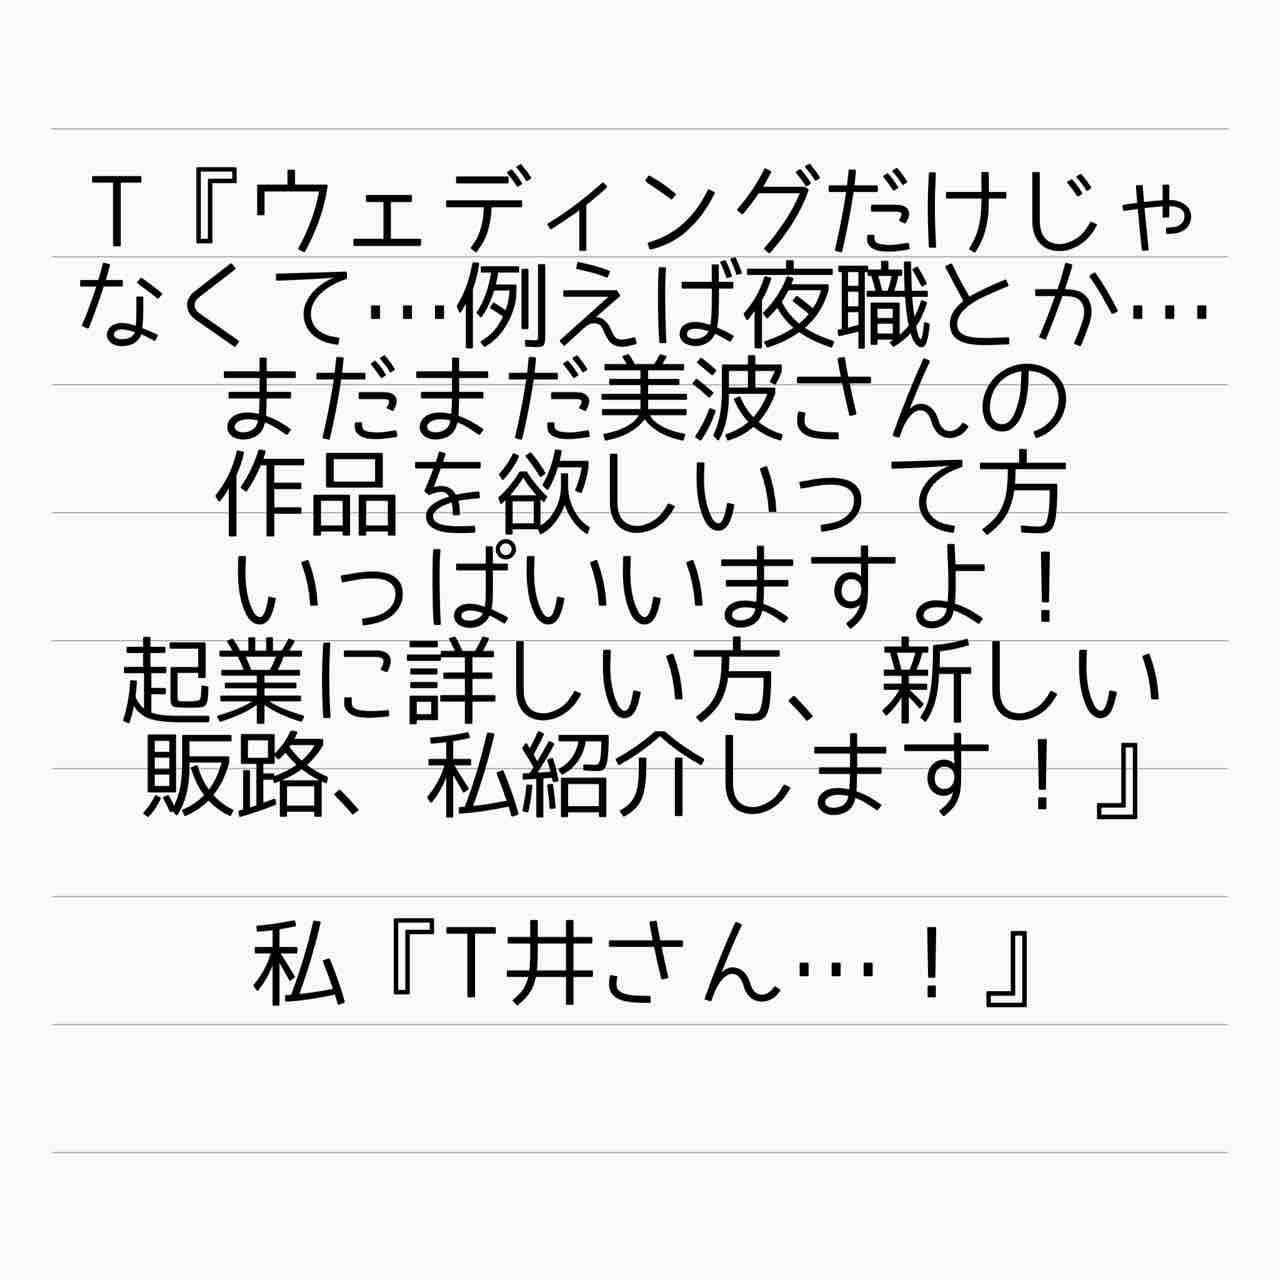 T『ウェディングだけじゃ
なくて…例えば夜職とか…
まだまだ美波さんの
作品を欲しいって方
いっぱいいますよ！
起業に詳しい方、新しい
販路、私紹介します！』
私『T井さん…！』